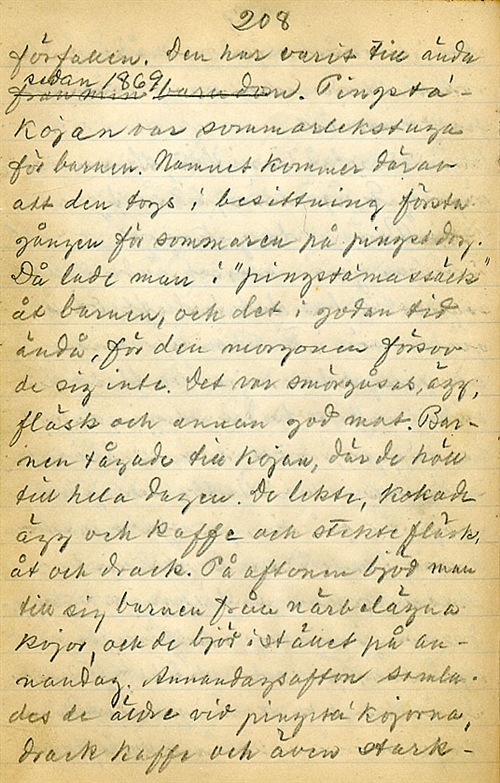 208
förfallen. Den har varit till ända
sedan 1869
från min barndom. Pingsta-
kojan var sommarlekstuga
för barnen. Namnet kommer därav
att den togs i besittning första
gången för sommaren på pingstdag.
Då lade man i "pingstamassäck"
åt barnen, och det i godan tid
ändå, för den morgonen försov
de sig inte. Det var smörgåsas, ägg,
fläsk och annan god mat. Bar-
nen tågade till kojan, där de höll
till hela dagen. De lekte, kokade
ägg och kaffe och stekte fläsk,
åt och drack. På aftonen bjöd man
till sig barnen från närbelägna
kojor, och de bjöd i stället på an-
nandag. Annandagsafton samla-
des de äldre vid pingstakojorna,
drack kaffe och även stark-